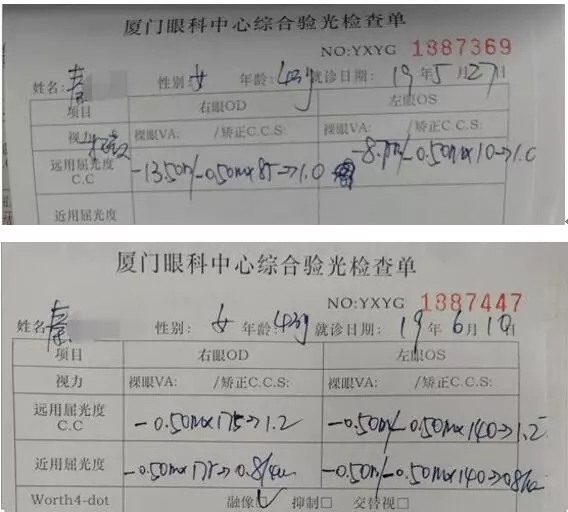 厦门眼科中心综合验光检查单
NO:YXYG 1387369
姓名:秦 性别:女 年龄:43y 就诊日期: 19 年 5 月 27 日
项目 右眼OD 左眼OS
视力 裸眼VA: /矫正C.C.S: 裸眼VA: /矫正C.C.S:
远用屈光度 C.C -13.50/-0.50×85→1.0 -0.50×10→1.0
近用屈光度
厦门眼科中心综合验光检查单
NO:YXYG 1387447
姓名:秦 性别: 女 年龄:43y 就诊日期: 19 年 6 月 10 日
项目 右眼OD 左眼OS
视力 裸眼VA: /矫正C.C.S: 裸眼VA: /矫正C.C.S:
远用屈光度 C.C -0.50×175→1.2 -0.50/-0.50×140→1.2
近用屈光度 -0.50×175→0.8 -0.50/-0.50×140→0.8
Worth4-dot 融像☑ 抑制□ 交替视□